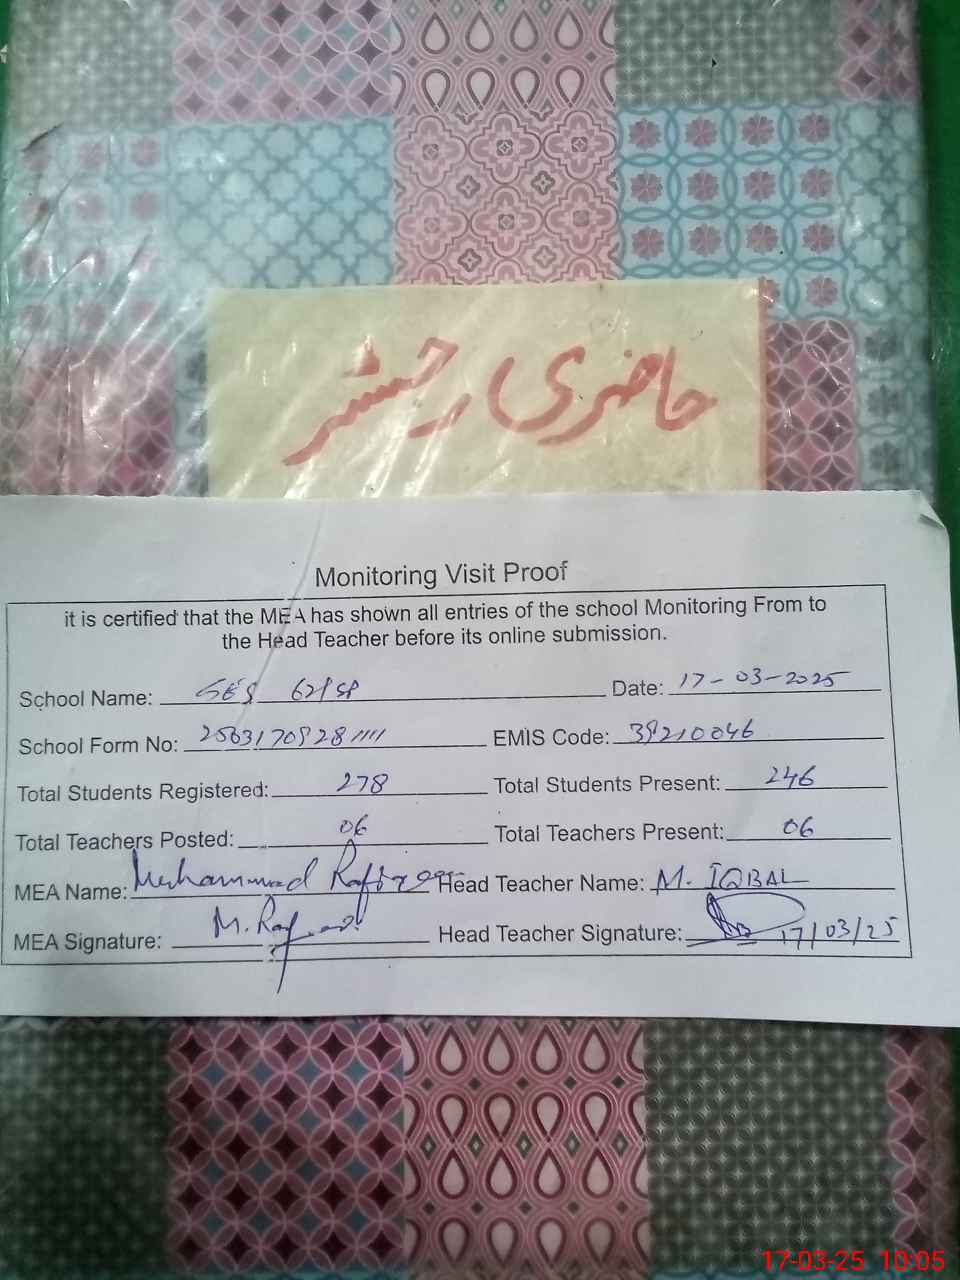 حاضری رجسٹر
Monitoring Visit Proof
it is certified that the MEA has shown all entries of the school Monitoring From to
the Head Teacher before its online submission.
School Name: GES Date: 17-03-2025
School Form No: EMIS Code: 39210046
Total Students Registered: 278 Total Students Present: 246
Total Teachers Posted: 06 Total Teachers Present: 06
MEA Name: Muhammad Head Teacher Name: M. IQBAL
MEA Signature: Head Teacher Signature: 17/03/25
17-03-25 10:05